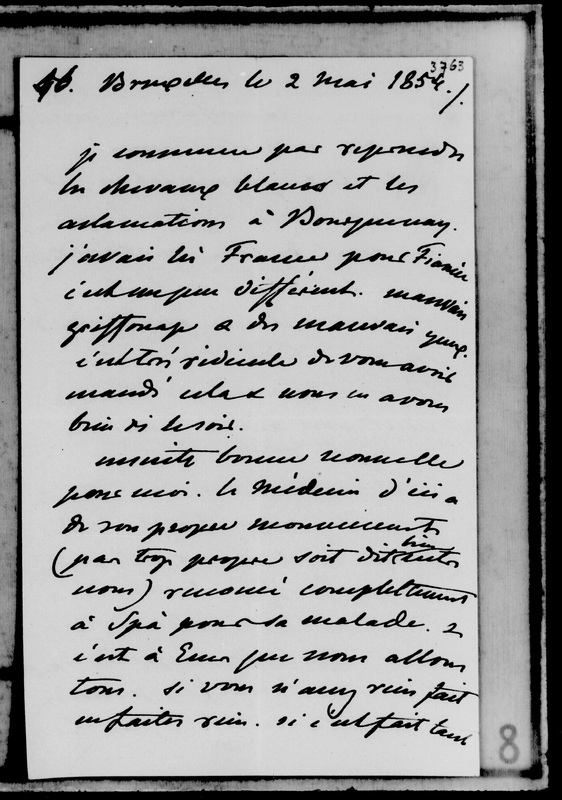 3763
46. Bruxelles le 2 mai 1854./.
je commence par reprendre
les chevaux blancs et les
aclamations à Bourqueney.
j'avais lû France pour Fiacre
c'est un peu différent. mauvais
griffonage & des mauvais yeux.
c'est très ridicule de vous avoir
mandé cela & nous en avons
bien ri le soir.
ensuite bonne nouvelle
pour moi. le Médecin d'ici a
de son propre mouvement
(par trop propre soit dit bien entre
nous) renoncé complettement
à Spà pour sa malade. &
c'est à Ems que nous allons
tous. si vous n'avez rien fait
ne faites rien. si c'est fait tant
8